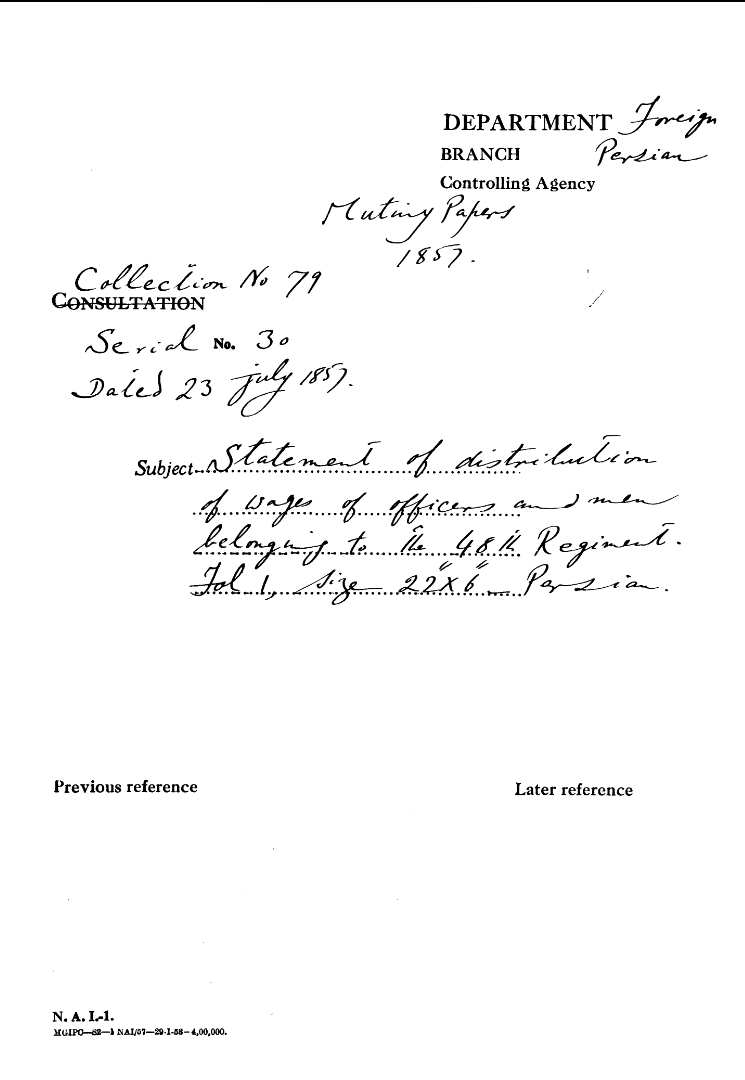 DEPARTMENT Foreign
BRANCH Persian
Controlling Agency
Mutiny Papers
1857.
Collection No 79
CONSULTATION
Serial No. 30
Dated 23 July 1857.
Subject Statement of distribution
of wages of officers and men
belonging to the 48th Regiment.
Fol 1, size 22"X6" - Persian.
Previous reference
Later reference
N. A. I.-1.
MGIPC—S2—1 NAI/57—29-1-58—4,00,000.